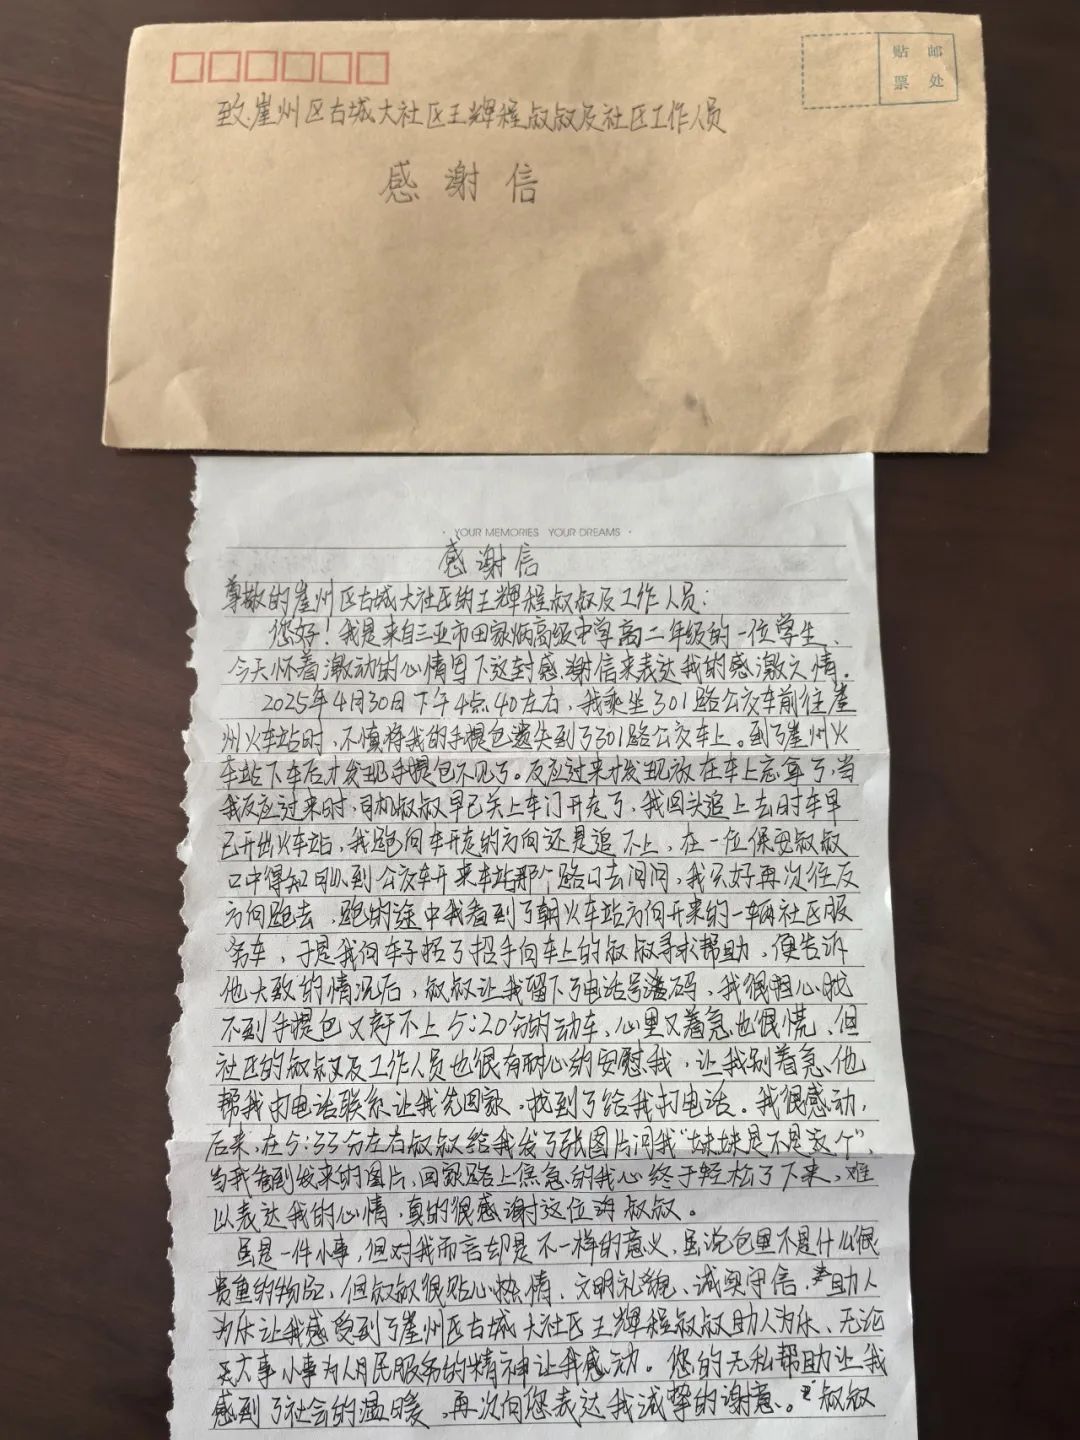 贴 邮
票 处
致崖州区古城大社区王辉程叔叔及社区工作人员
感谢信
· YOUR MEMORIES YOUR DREAMS ·
感谢信
尊敬的崖州区古城大社区的王辉程叔叔及工作人员：
您好！我是来自三亚市田家炳高级中学高二年级的一位学生、
今天怀着激动的心情写下这封感谢信来表达我的感激之情。
2025年4月30日下午4点40左右，我乘坐301路公交车前往崖
州火车站时，不慎将我的手提包遗失到了301路公交车上。到了崖州火
车站下车后才发现手提包不见了。反应过来才发现放在车上忘拿了，当
我反应过来时，司机叔叔早已关上车门开走了，我回头追上去时车早
已开出火车站，我跑向车开走的方向还是追不上，在一位保安叔叔
口中得知可以到公交车开来车站那个路口去问问，我只好再次往反
方向跑去，跑的途中我看到了朝火车站方向开来的一辆社区服
务车，于是我向车子招了招手向车上的叔叔寻求帮助，便告诉
他大致的情况后，叔叔让我留下了电话号码，我很担心找
不到手提包又赶不上5:20分的动车，心里又着急也很慌、但
社区的叔叔及工作人员也很有耐心的安慰我，让我别着急、他
帮我打电话联系让我先回家，找到了给我打电话。我很感动，
后来，在5:33分左右叔叔给我发了张图片问我“妹妹是不是这个”，
当我看到发来的图片，回家路上焦急的我心终于轻松了下来，难
以表达我的心情，真的很感谢这位 叔叔。
虽是一件小事，但对我而言却是不一样的意义，虽说包里不是什么很
贵重的物品，但叔叔很贴心热情、文明礼貌、诚实守信，助人
为乐让我感受到了崖州区古城大社区王辉程叔叔助人为乐、无论
大事小事为人民服务的精神让我感动。您的无私帮助让我
感到了社会的温暖，再次向您表达我诚挚的谢意。叔叔